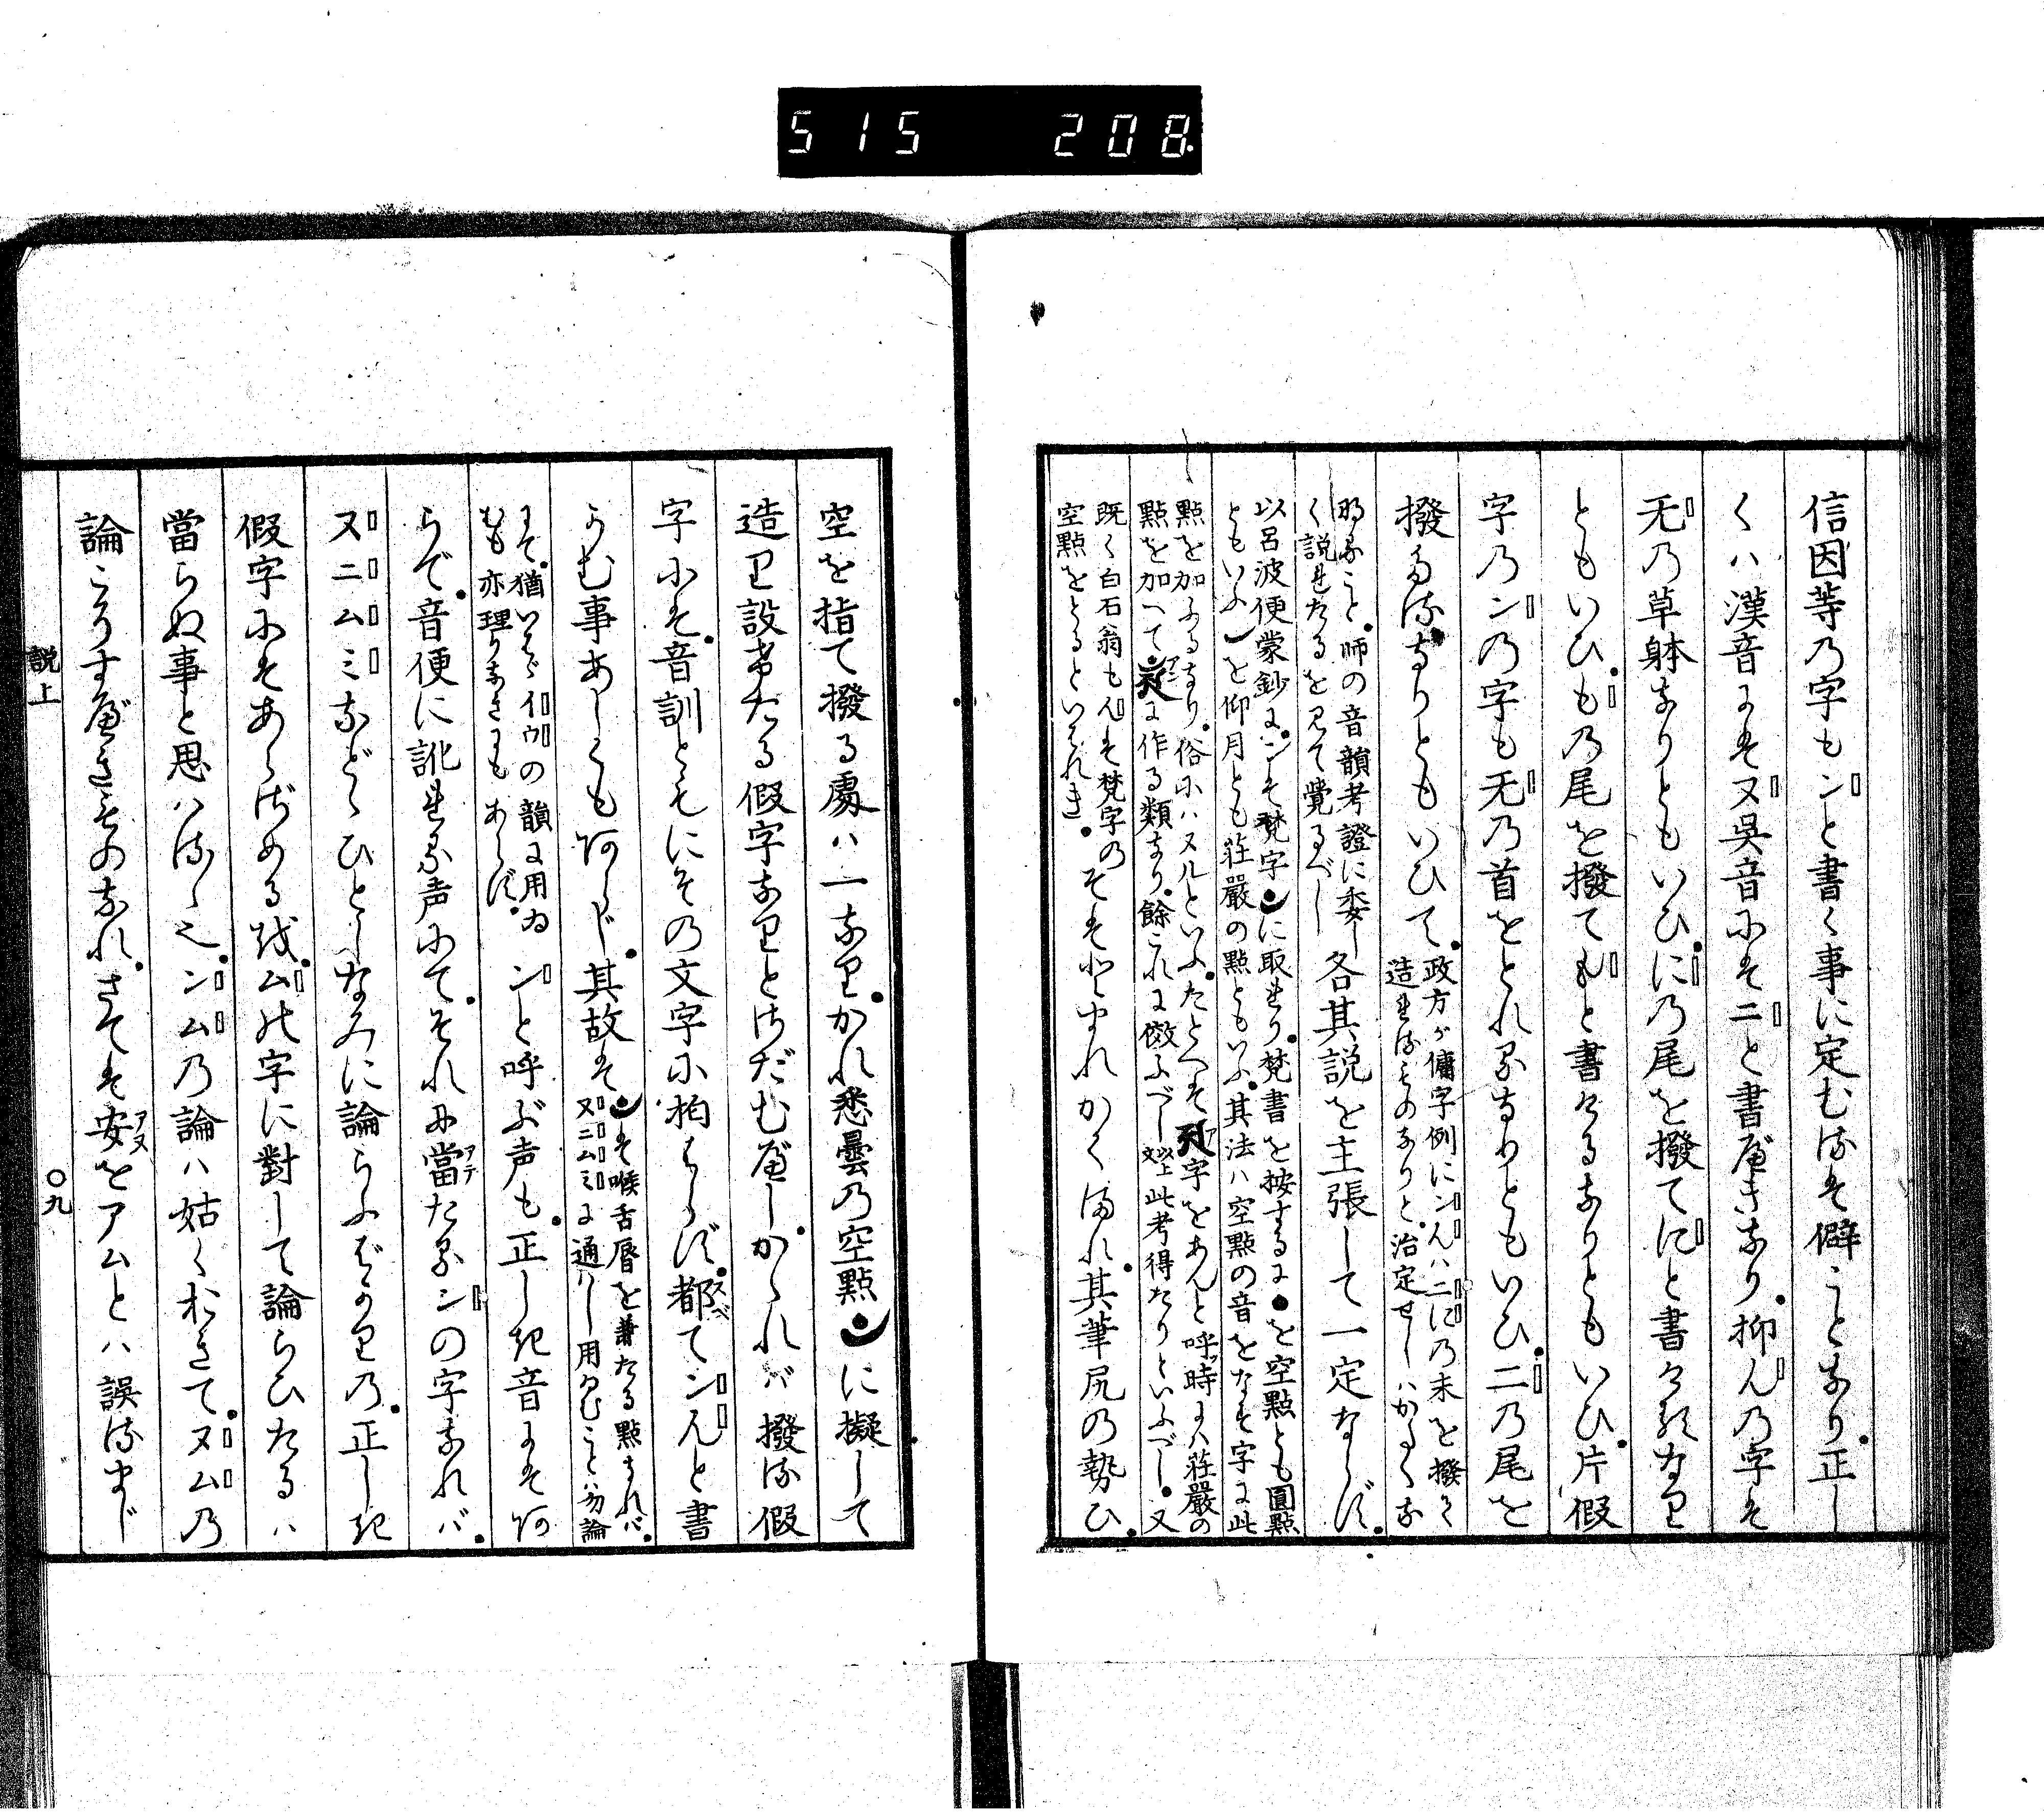 515 208
信因等乃字もンと書く事に定むるは僻ことなり。正し
くハ漢音には又呉音にはニと書べきなり。抑ん乃字は
无乃草躰なりともいひ。に乃尾を撥てにと書るなり
ともいひ。も乃尾を撥てもと書るなりともいひ。片假
字乃ンの字も无乃首をとれるなりともいひ。二乃尾を
撥るなりともいひて。政方が傭字例にンんハニに乃末を撥て
造れるものなりと。治定せしハかたくな
なること。師の音韻考證に委し
く説れたるを見て覚るべし各其説を主張して一定ならず。
以呂波便蒙鈔に。ンは梵字に取れり。梵書を按するに●を空點とも圓點
ともいふ。を仰月とも莊嚴の點ともいふ。其法ハ空點の音をなす字に此
點を加ふるなり。俗にハヌルといふ。たとへは字をあんと呼時にハ莊嚴の
點を加へてに作る類なり。餘これに傚ふべし以上文此考得たりといふべし。又
既く白石翁もんは梵字の
空點をとるといはれき。そはとまれかくまれ。其筆尻乃勢ひ。
空を指て撥る處ハ一なり。かれ悉曇乃空點に擬して
造り設けたる假字なりとさだむべし。かゝれバ撥る假
字には。音訓ともにその文字に拘はらず。都てンんと書
かむ事あしくも何らじ。其故はは喉舌唇を兼たる點なれバ。
ヌニムミに通ハし用けむことハ勿論
にて。猶いはゞイウの韻に用ゐ
むも亦理りなきにもあらず。ンと呼ぶ声も。正しき音には何
らで。音便に訛れる声にて。それに當たるンの字なれバ。
ヌニムミなどゝひとしなみに論らふべかり乃。正しき
假字にはあらざめるを。ムの字に對して論らひたるハ
當らぬ事と思はるゝ也。ンム乃論ハ姑くおきて。ヌム乃
論こうすべきものなれ。さては安をアムとハ誤るまじ
説上
〇九